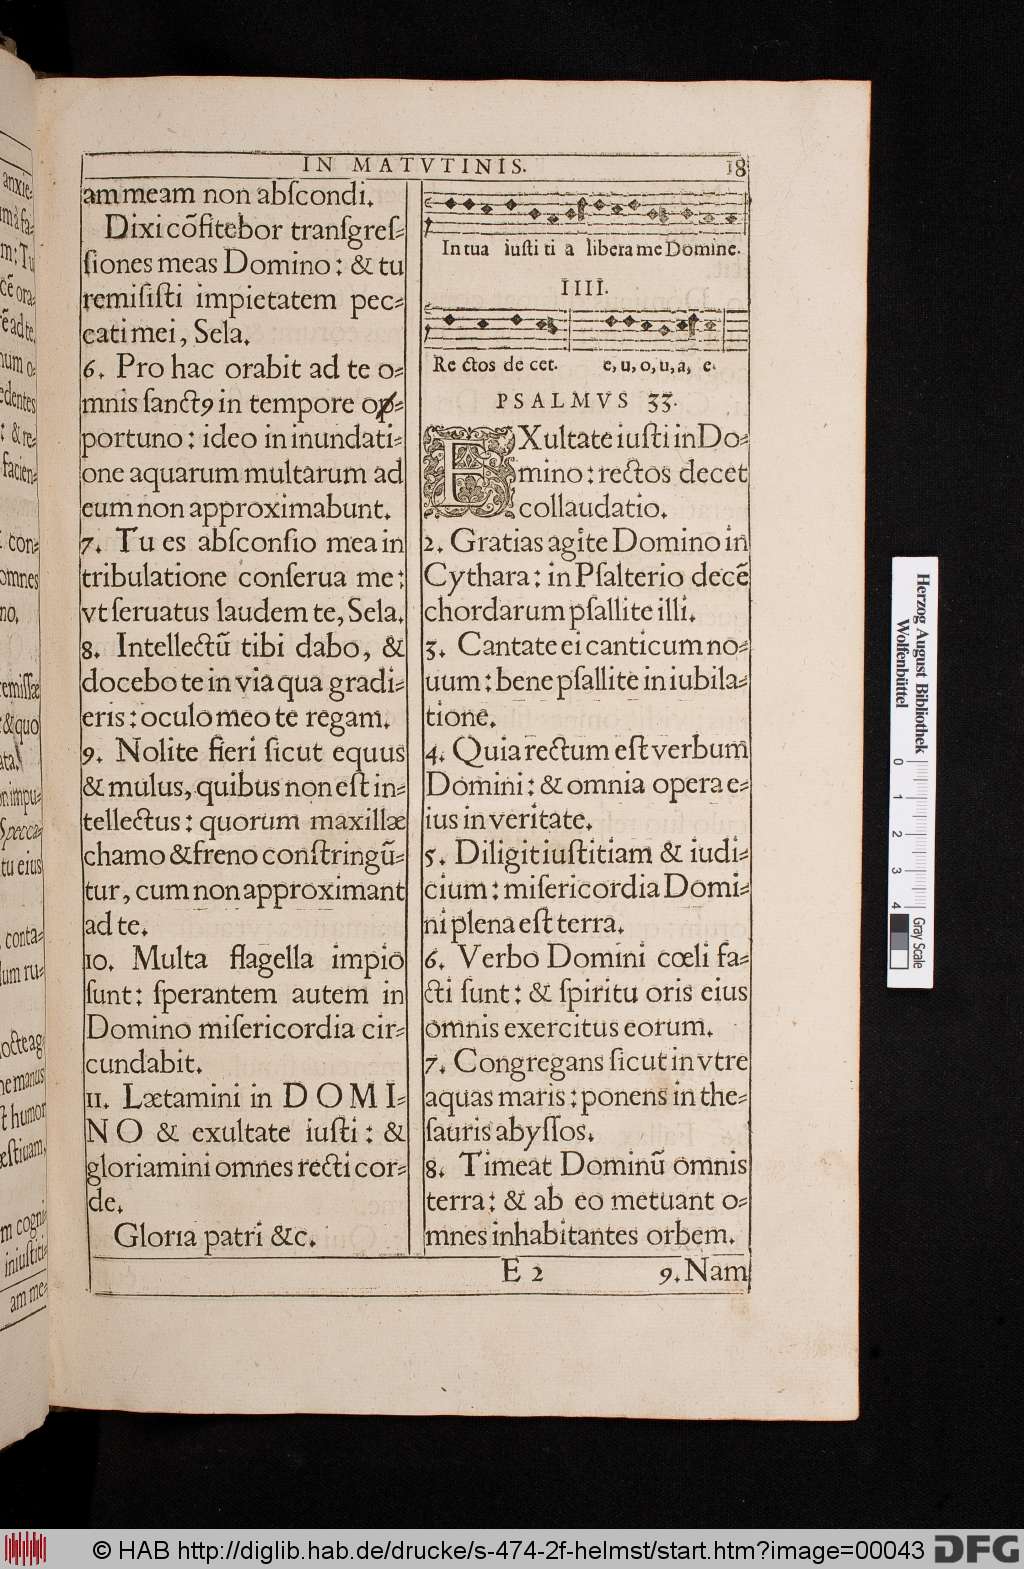 IN MATVTINIS.
18
am meam non abſcondi.
Dixi cõfitebor tranſgreſ-
ſiones meas Domino: & tu
remiſiſti impietatem pec-
cati mei, Sela.
6. Pro hac orabit ad te o-
mnis ſanctꝰ in tempore op-
portuno: ideo in inundati-
one aquarum multarum ad
eum non approximabunt.
7. Tu es abſconſio mea in
tribulatione conſerua me:
vt ſeruatus laudem te, Sela.
8. Intellectũ tibi dabo, &
docebo te in via qua gradi-
eris: oculo meo te regam.
9. Nolite fieri ſicut equus
& mulus, quibus non eſt in-
tellectus: quorum maxillæ
chamo & freno conſtringũ-
tur, cum non approximant
ad te.
10. Multa flagella impio
ſunt: ſperantem autem in
Domino miſericordia cir-
cundabit.
11. Lætamini in DOMI-
NO & exultate iuſti: &
gloriamini omnes recti cor-
de.
Gloria patri &c.
In tua iuſti ti a libera me Domine.
IIII.
Re ctos de cet. e, u, o, u, a, e.
PSALMVS 33.
EXultate iuſti in Do-
mino: rectos decet
collaudatio.
2. Gratias agite Domino in
Cythara: in Pſalterio decẽ
chordarum pſallite illi.
3. Cantate ei canticum no-
uum: bene pſallite in iubila-
tione.
4. Quia rectum eſt verbum
Domini: & omnia opera e-
ius in veritate.
5. Diligit iuſtitiam & iudi-
cium: miſericordia Domi-
ni plena eſt terra.
6. Verbo Domini cœli fa-
cti ſunt: & ſpiritu oris eius
omnis exercitus eorum.
7. Congregans ſicut in vtre
aquas maris: ponens in the-
ſauris abyſſos.
8. Timeat Dominũ omnis
terra: & ab eo metuant o-
mnes inhabitantes orbem.
E 2
9. Nam
Herzog August Bibliothek
Wolfenbüttel
0 1 2 3 4
Gray Scale
© HAB http://diglib.hab.de/drucke/s-474-2f-helmst/start.htm?image=00043
DFG